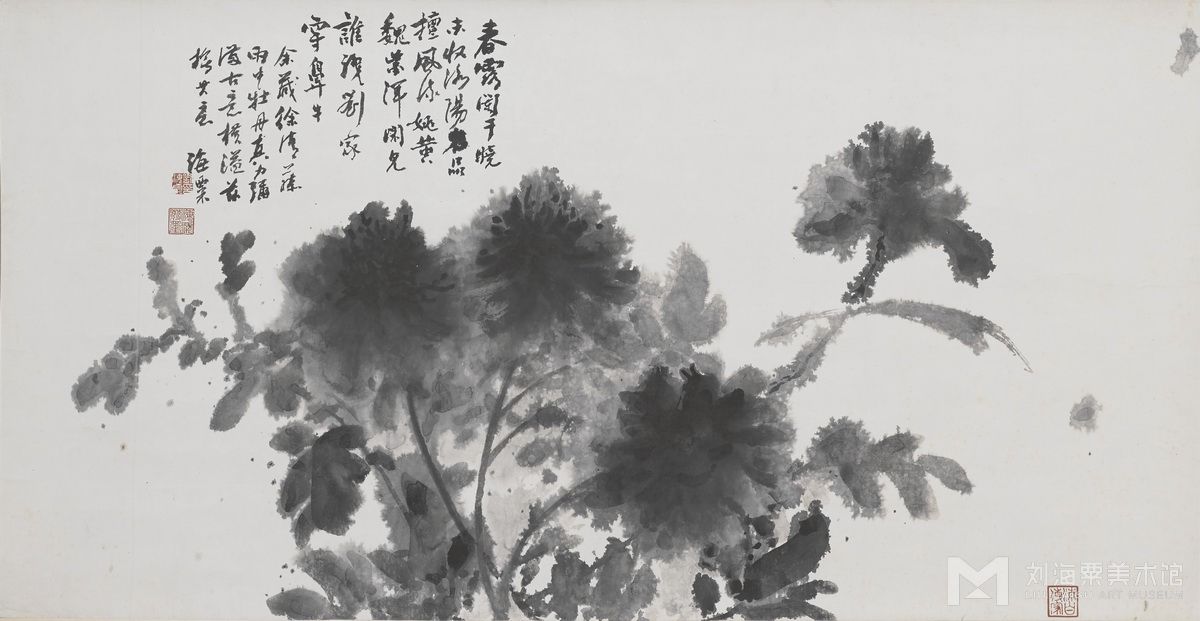 春露闌干曉
未收洛陽名品
擅風流姚黃
魏紫渾閑見
誰識劉家
穿鼻牛
余藏徐青藤
雨中牡丹真力彌
滿古意橫溢茲
橅其意
海粟
刘海粟美术馆
LIU HAISU ART MUSEUM